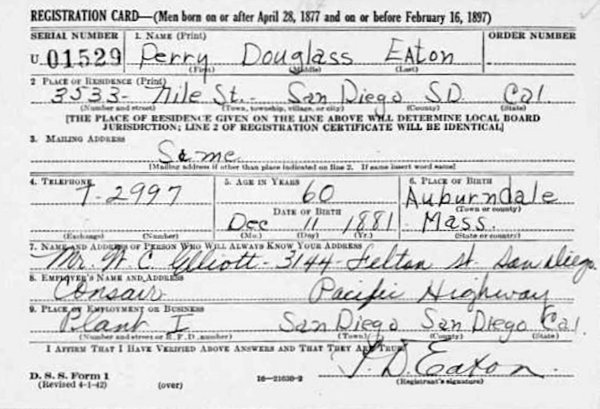 REGISTRATION CARD—(Men born on or after April 28, 1877 and on or before February 16, 1897)
SERIAL NUMBER 1. NAME (Print) ORDER NUMBER
U 01529 Perry Douglass EATON
(First) (Middle) (Last)
2 PLACE OF RESIDENCE (Print)
3533- Nile St.- San Diego S.D. Cal.
(Number and street) (Town, township, village, or city) (County) (State)
[THE PLACE OF RESIDENCE GIVEN ON THE LINE ABOVE WILL DETERMINE LOCAL BOARD
JURISDICTION; LINE 2 OF REGISTRATION CERTIFICATE WILL BE IDENTICAL]
3. MAILING ADDRESS
Same
[Mailing address if other than place indicated on line 2. If same insert word same]
4. TELEPHONE 5. AGE IN YEARS 6. PLACE OF BIRTH
T-2997 60 Auburndale
(Town or county)
DATE OF BIRTH
Dec 11 1881 Mass.
(Exchange) (Number) (Mo.) (Day) (Yr.) (State or country)
7. NAME AND ADDRESS OF PERSON WHO WILL ALWAYS KNOW YOUR ADDRESS
Mr. W. C. Elliott - 3144- Felton St. San Diego.
8. EMPLOYER'S NAME AND ADDRESS
Consair Pacific Highway
9. PLACE OF EMPLOYMENT OR BUSINESS
Plant I San Diego San Diego Cal.
(Number and street or R. F. D. number) (Town) (County) (State)
I AFFIRM THAT I HAVE VERIFIED ABOVE ANSWERS AND THAT THEY ARE TRUE.
P. D. Eaton.
D. S. S. Form 1
(Revised 4-1-42) (over) 16—21630-2 (Registrant's signature)